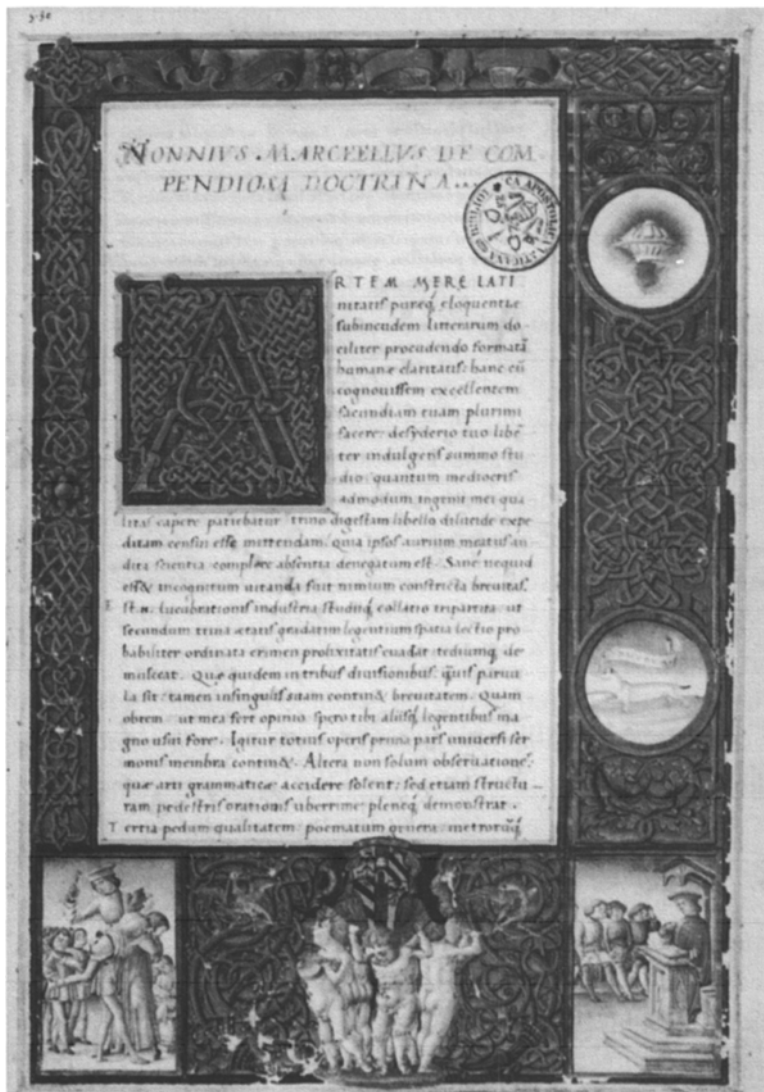 NONNIVS. MARCEELLVS DE COM.
PENDIOSA DOCTRINA...
RTEM MERE LATI
nitatis pureq; eloquentie
subincudem litterarum do
ciliter procudendo formatā
humane claritatis: hanc cū
cognouissem excellentem
facundiam tuam plurimi
facere: desyderio tuo libē
ter indulgens summo stu
dio: quantum mediocris
admodum ingenii mei qua
litas capere patiebatur: trino digestam libello dilucide expe
ditam censui esse mittendam. quia ipsos aurium meatus an
dita scientia complere absentia denegatum est. Sane nequid
ess& incognitum uitanda fuit nimium constricta breuitas.
lucubrationis industria studiiq; collatio tripartita: ut
secundum trina ætatis gradatim legentium spatia lectio pro
babiliter ordinata crimen prolixitatis euadat: tediumq; de
mulceat. Que quidem in tribus diuisionibus: quis parua
la sit: tamen insingulis suam contin& breuitatem. Quam
obrem: ut mea fert opinio spero tibi aliisq; legentibus ma
gno usui fore. Igitur totius operis prima pars uniuersi ser
monis membra contin&. Altera non solum obseruationes:
quæ arti grammatice accidere solent: sed etiam structu
ram pedestris orationis uberrime pleneq; demonstrat.
Tertia pedum qualitatem: poematum genera: metrorūq;